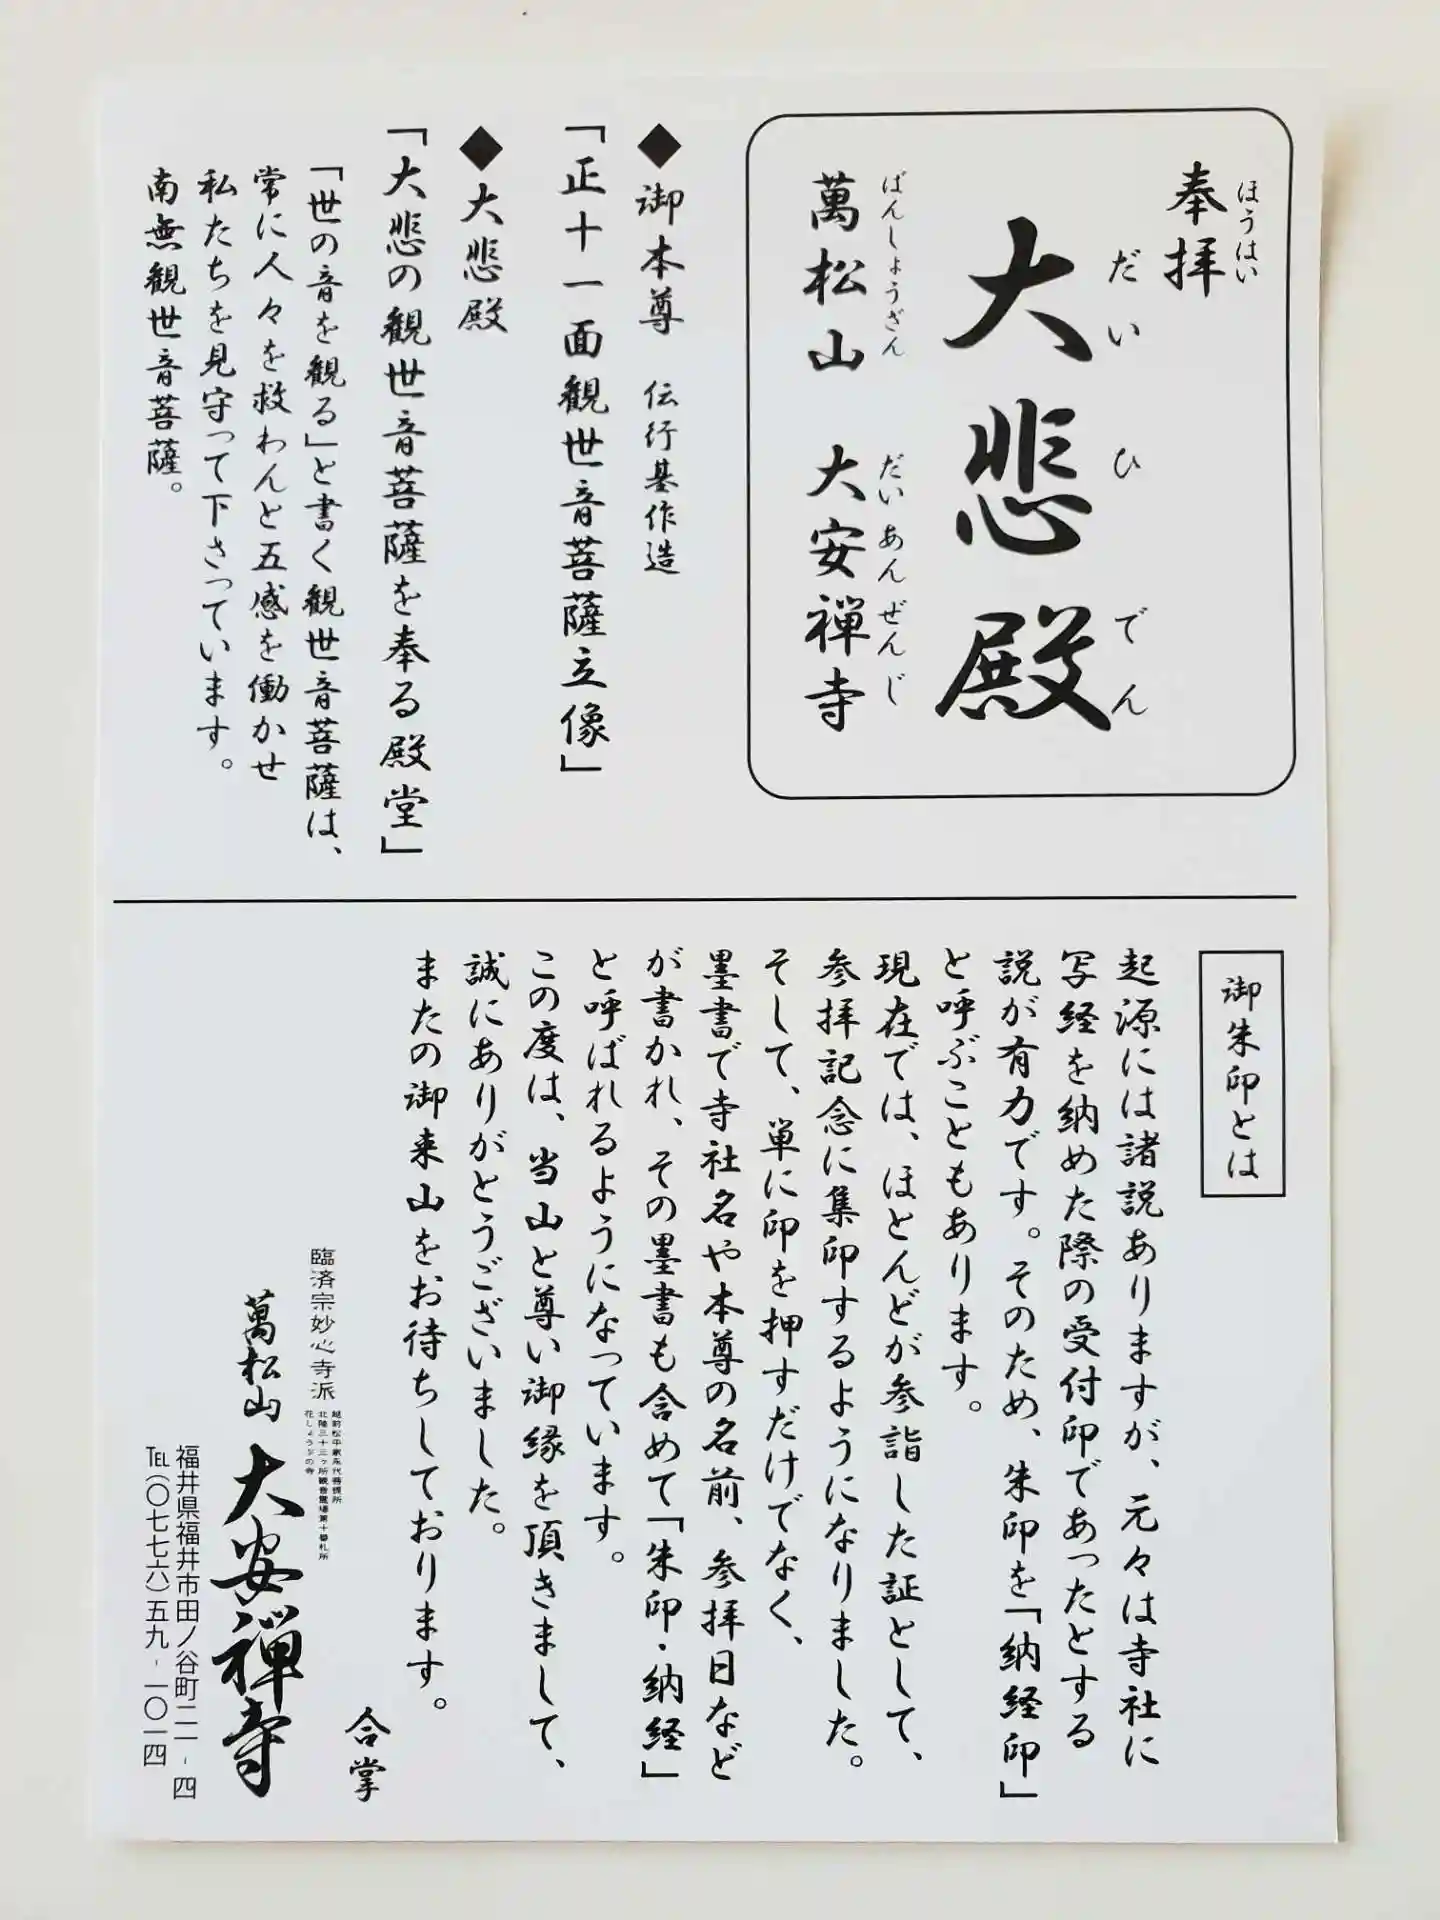 奉拝
ほうはい
大悲殿
だいひでん
萬松山 大安禅寺
ばんしょうざん だいあんぜんじ
◆御本尊 伝行基作造
「正十一面観世音菩薩立像」
◆大悲殿
「大悲の観世音菩薩を奉る殿堂」
「世の音を観る」と書く観世音菩薩は、
常に人々を救わんと五感を働かせ
私たちを見守って下さっています。
南無観世音菩薩。
御朱印とは
起源には諸説ありますが、元々は寺社に
写経を納めた際の受付印であったとする
説が有力です。そのため、朱印を「納経印」
と呼ぶこともあります。
現在では、ほとんどが参詣した証として、
参拝記念に集印するようになりました。
そして、単に印を押すだけでなく、
墨書で寺社名や本尊の名前、参拝日など
が書かれ、その墨書も含めて「朱印・納経」
と呼ばれるようになっています。
この度は、当山と尊い御縁を頂きまして、
誠にありがとうございました。
またの御来山をお待ちしております。
合掌
越前松平家永代菩提所
北陸三十三ヶ所観音霊場第十番札所
花しょうぶの寺
臨済宗妙心寺派
萬松山 大安禅寺
福井県福井市田ノ谷町二一-四
℡(〇七七六)五九-一〇一四